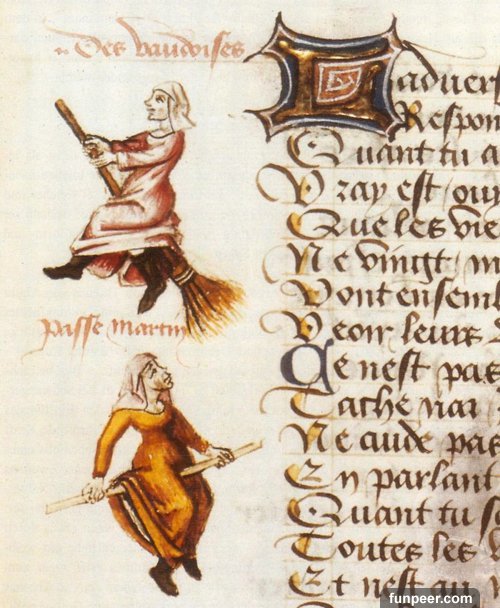 Des vaudoises
passe martin
Ladvers
Respon
Quant tu a
Vray est ouy
Que les vie
Ne vingt m
Vont ensem
Veoir leurs
Ce nest pas
Tache nar
Ne cuide pas
En parlant
Quant tu s
Toutes les
Et nest au
funpeer.com